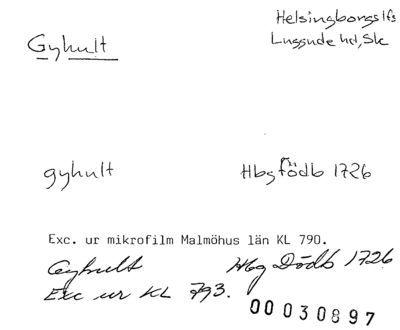 Gyhult
Helsingborgs lfs
Luggude hd, Sk
gyhult
Hbg födb 1726
Exc. ur mikrofilm Malmöhus län KL 790.
Gyhult Hbg Dödb 1726
Exc ur KL 793.
00030897